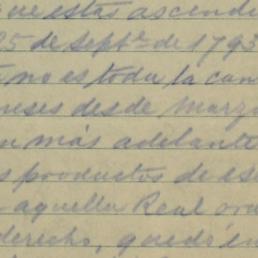 que estas ascendi
25 de Septe. de 1793
no es toda la can
meses desde Marzo
n más adelante
s productos de es
aquella Real ord
derecho, quedó en